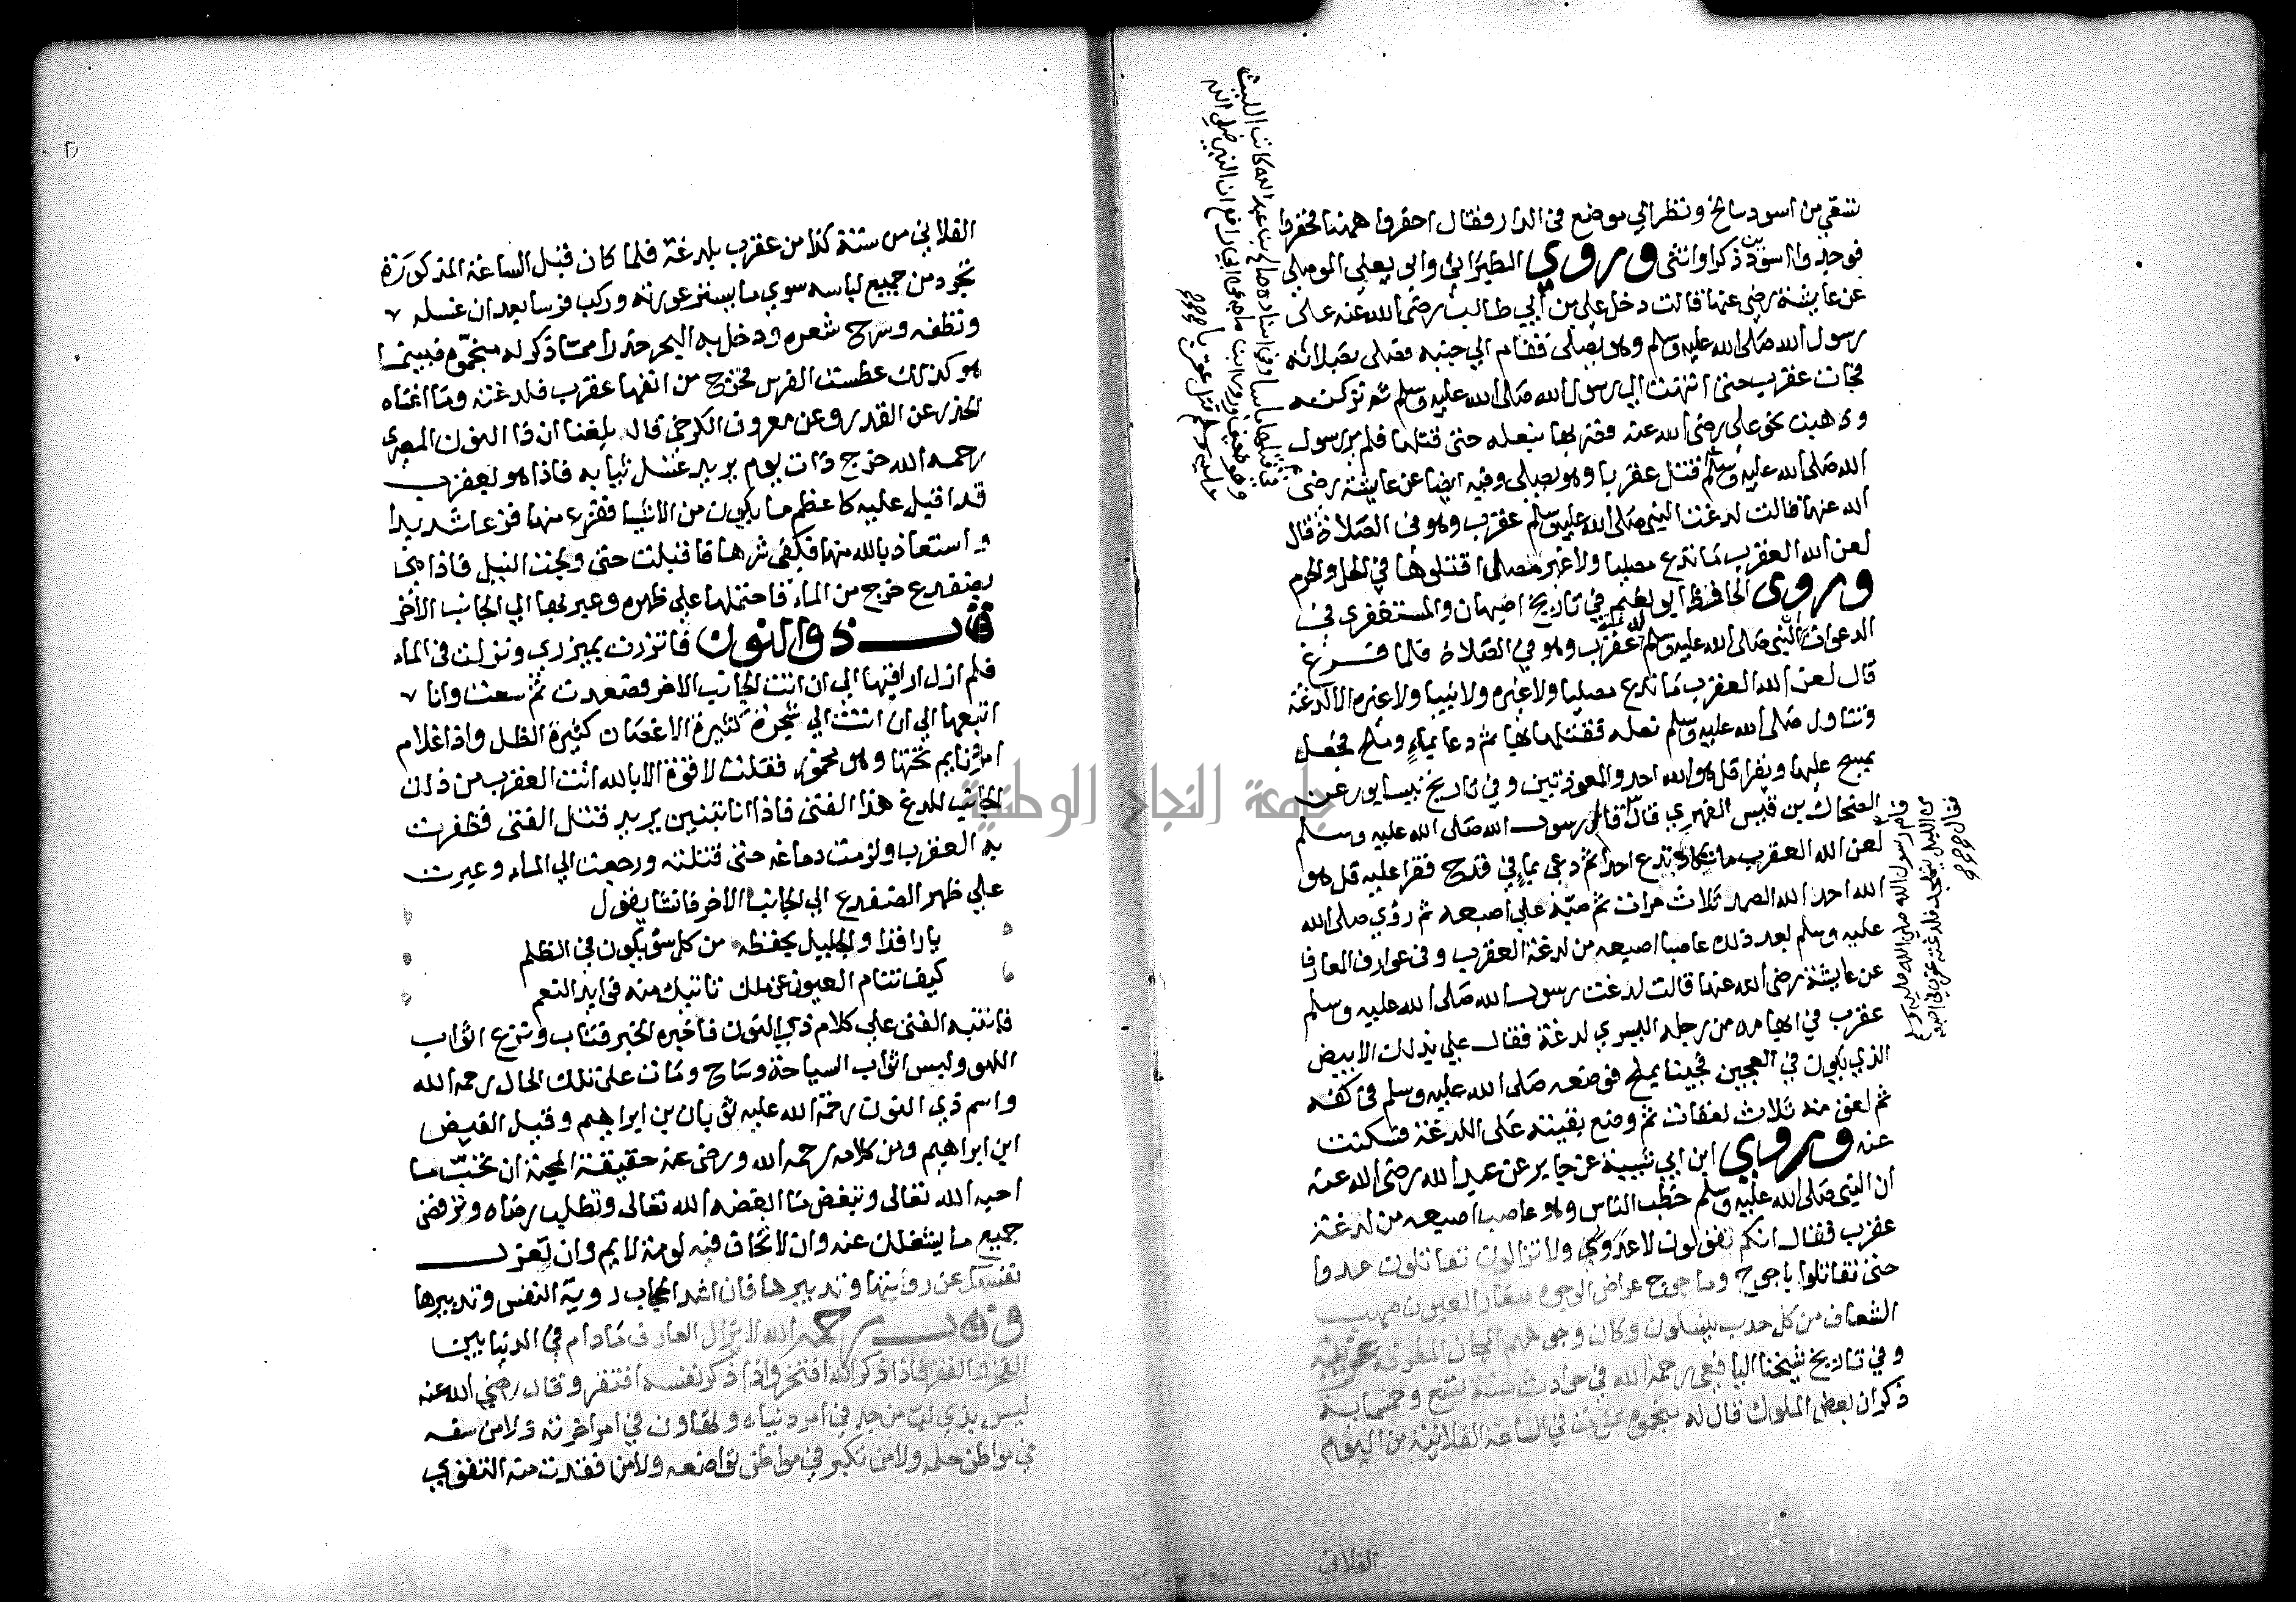 شقي من اسود سالخ ونظر الي موضع في الدار وفقال احفروا ههنا فحفروا
فوجدوا اسودين ذكرا وانثى وروي الطبراني وابي يعلي الموصلي
عن عايشة رضي عنها قالت دخل علي بن ابي طالب رضي الله عنه على
رسول الله صلى الله عليه وسلم وهو يصلي فقام الي جنبه فصلى بصلاته
فجات عقرب حتى انتهت الي رسول الله صلى الله عليه وسلم ثم تركته
وذهبت نحو علي رضي الله عنه فضربها بنعله حتى قتلها فلم ير رسول
الله صلى الله عليه وسلم بقتل عقربا وهو يصلي وفيه ايضا عن عايشة رضي
الله عنها قالت لدغت النبي صلى الله عليه وسلم عقرب وهو في الصلاة قال
لعن الله العقرب ما تدع مصليا ولا غير مصلي اقتلوها في الحل والحرم
وروى الحافظ ابو نعيم في تاريخ اصبهان والمستغفري في
الدعوات النبي صلى الله عليه وسلم لدغته عقرب وهو في الصلاة فلما فرغ
قال لعن الله العقرب ما تدع مصليا ولا غيره ولا نبيا ولا غيره الا لدغته
وتناول صلى الله عليه وسلم نعله فقتلها بها ثم دعا بماء وملح فجعل
يمسح عليها ويقرا قل هو الله احد والمعوذتين وفي تاريخ نيسابور عن
الضحاك بن قيس الفهري قال قام رسول الله صلى الله عليه وسلم
لعن الله العقرب ما تكاد تدع احدا ثم دعى بماء في قدح فقرا عليه قل هو
الله احد الله الصمد ثلاث مرات ثم صبه علي اصبعه ثم رؤي صلى الله
عليه وسلم بعد ذلك عاصبا اصبعه من لدغة العقرب وفي عوارف المعارف
عن عايشة رضي الله عنها قالت لدغت رسول الله صلى الله عليه وسلم
عقرب في ابهامه من رجله اليسري لدغة فقال علي بذلك الابيض
الذي يكون في العجين فجينا بملح فوضعه صلى الله عليه وسلم في كفه
ثم لعق منه ثلاث لعقات ثم وضع بقيته على اللدغة فسكنت
عنه وروي ابن ابي شيبة عن جابر عن عبد الله رضي الله عنه
ان النبي صلى الله عليه وسلم خطب الناس وهو عاصب اصبعه من لدغة
عقرب فقال انكم تقولون لا عدو ولا تزالون تقاتلون عدوا
حتى تقاتلوا ياجوج وماجوج عراض الوجوه صغار العيون صهب
الشعاف من كل حدب ينسلون وكان وجوههم المجان المطرقة غريبة
وفي تاريخ شيخنا اليافعي رحمه الله في حوادث سنة تسع وخمماية
ذكر ان بعض الملوك قال له منجموه تموت في الساعة الفلانية من اليوم
الفلاني
من الليل يتهجد فلدغته عقرب في اصبعه
فقال
الفلاني من سنة كذا من عقرب بلدغة فلما كان قبل الساعة المذكورة
تجرد من جميع لباسه سوي ما يستر عورته وركب فرسا بعد ان غسله
ونظفه وسرح شعره ودخل به البحر حذرا مما ذكر له منجموه فبينما
هو كذلك عطست الفرس فخرج من انفها عقرب فلدغته وما اغناه
الحذر عن القدر وعن معروف الكرخي قال بلغنا ان ذا النون المصري
رحمه الله خرج ذات يوم يريد غسل ثيابه فاذا هو بعقرب
قد اقبل عليه كاعظم ما يكون من الاشيا ففزع منها فزعا شديدا
واستعاذ بالله منها فكفي شرها فاقبلت حتى وبجت النيل فاذا هي
بضفدع خرج من الماء فاحتملها علي ظهره وعبر بها الي الجانب الآخر
قال ذو النون فاتزرت بميزري ونزلت في الماء
فلم ازل اراقبها الي ان اتت الجانب الاخر فصعدت ثم سعت وانا
اتبعها الي ان اتت الي شجرة كثيرة الاغصان كثيرة الظل واذا غلام
امرد نايم تحتها وهو مخمور فقلت لا قوة الا بالله اتت العقرب من ذلك
الجانب للدغ هذا الفتى فاذا انا بتنين يريد قتل الفتى فظفرت
به العقرب ولزمت دماغه حتى قتلته ورجعت الي الماء وعبرت
علي ظهر الضفدع الي الجانب الاخر فانشا يقول
يا راقدا والجليل يحفظه من كل سؤ يكون في الظلم
كيف تنام العيون عن ملك تاتيك منه فوايد النعم
فانتبه الفتى علي كلام ذي النون فاخبره الخبر فتاب ونزع اثواب
اللهو ولبس اثواب السياحة وساح ومات على تلك الحال رحمه الله
واسم ذي النون رحمة الله عليه ثوبان بن ابراهيم وقيل الفيض
ابن ابراهيم ومن كلامه رحمه الله ورضى عنه حقيقة المحبة ان تحب ما
احبه الله تعالى وتبغض ما ابغضه الله تعالى وتطلب رضاه وترفض
جميع ما يشغلك عنه وان لا تخاف فيه لومة لايم وان تعزب
نفسك عن رؤيتها وتدبيرها فان اشد الحجاب روية النفس وتدبيرها
وقال رحمه الله لا يزال العارف ما دام في الدنيا بين
الفخر والفقر فاذا ذكر الله افتخر واذا ذكر نفسه افتقر وقال رضي الله عنه
ليس بذي لب من جد في امر دنياه وتهاون في امر اخرته ولا من سفه
في مواطن حلمه ولا من تكبر في مواطن تواضعه ولا من فقدت منه التقوي
جامعة النجاح الوطنية